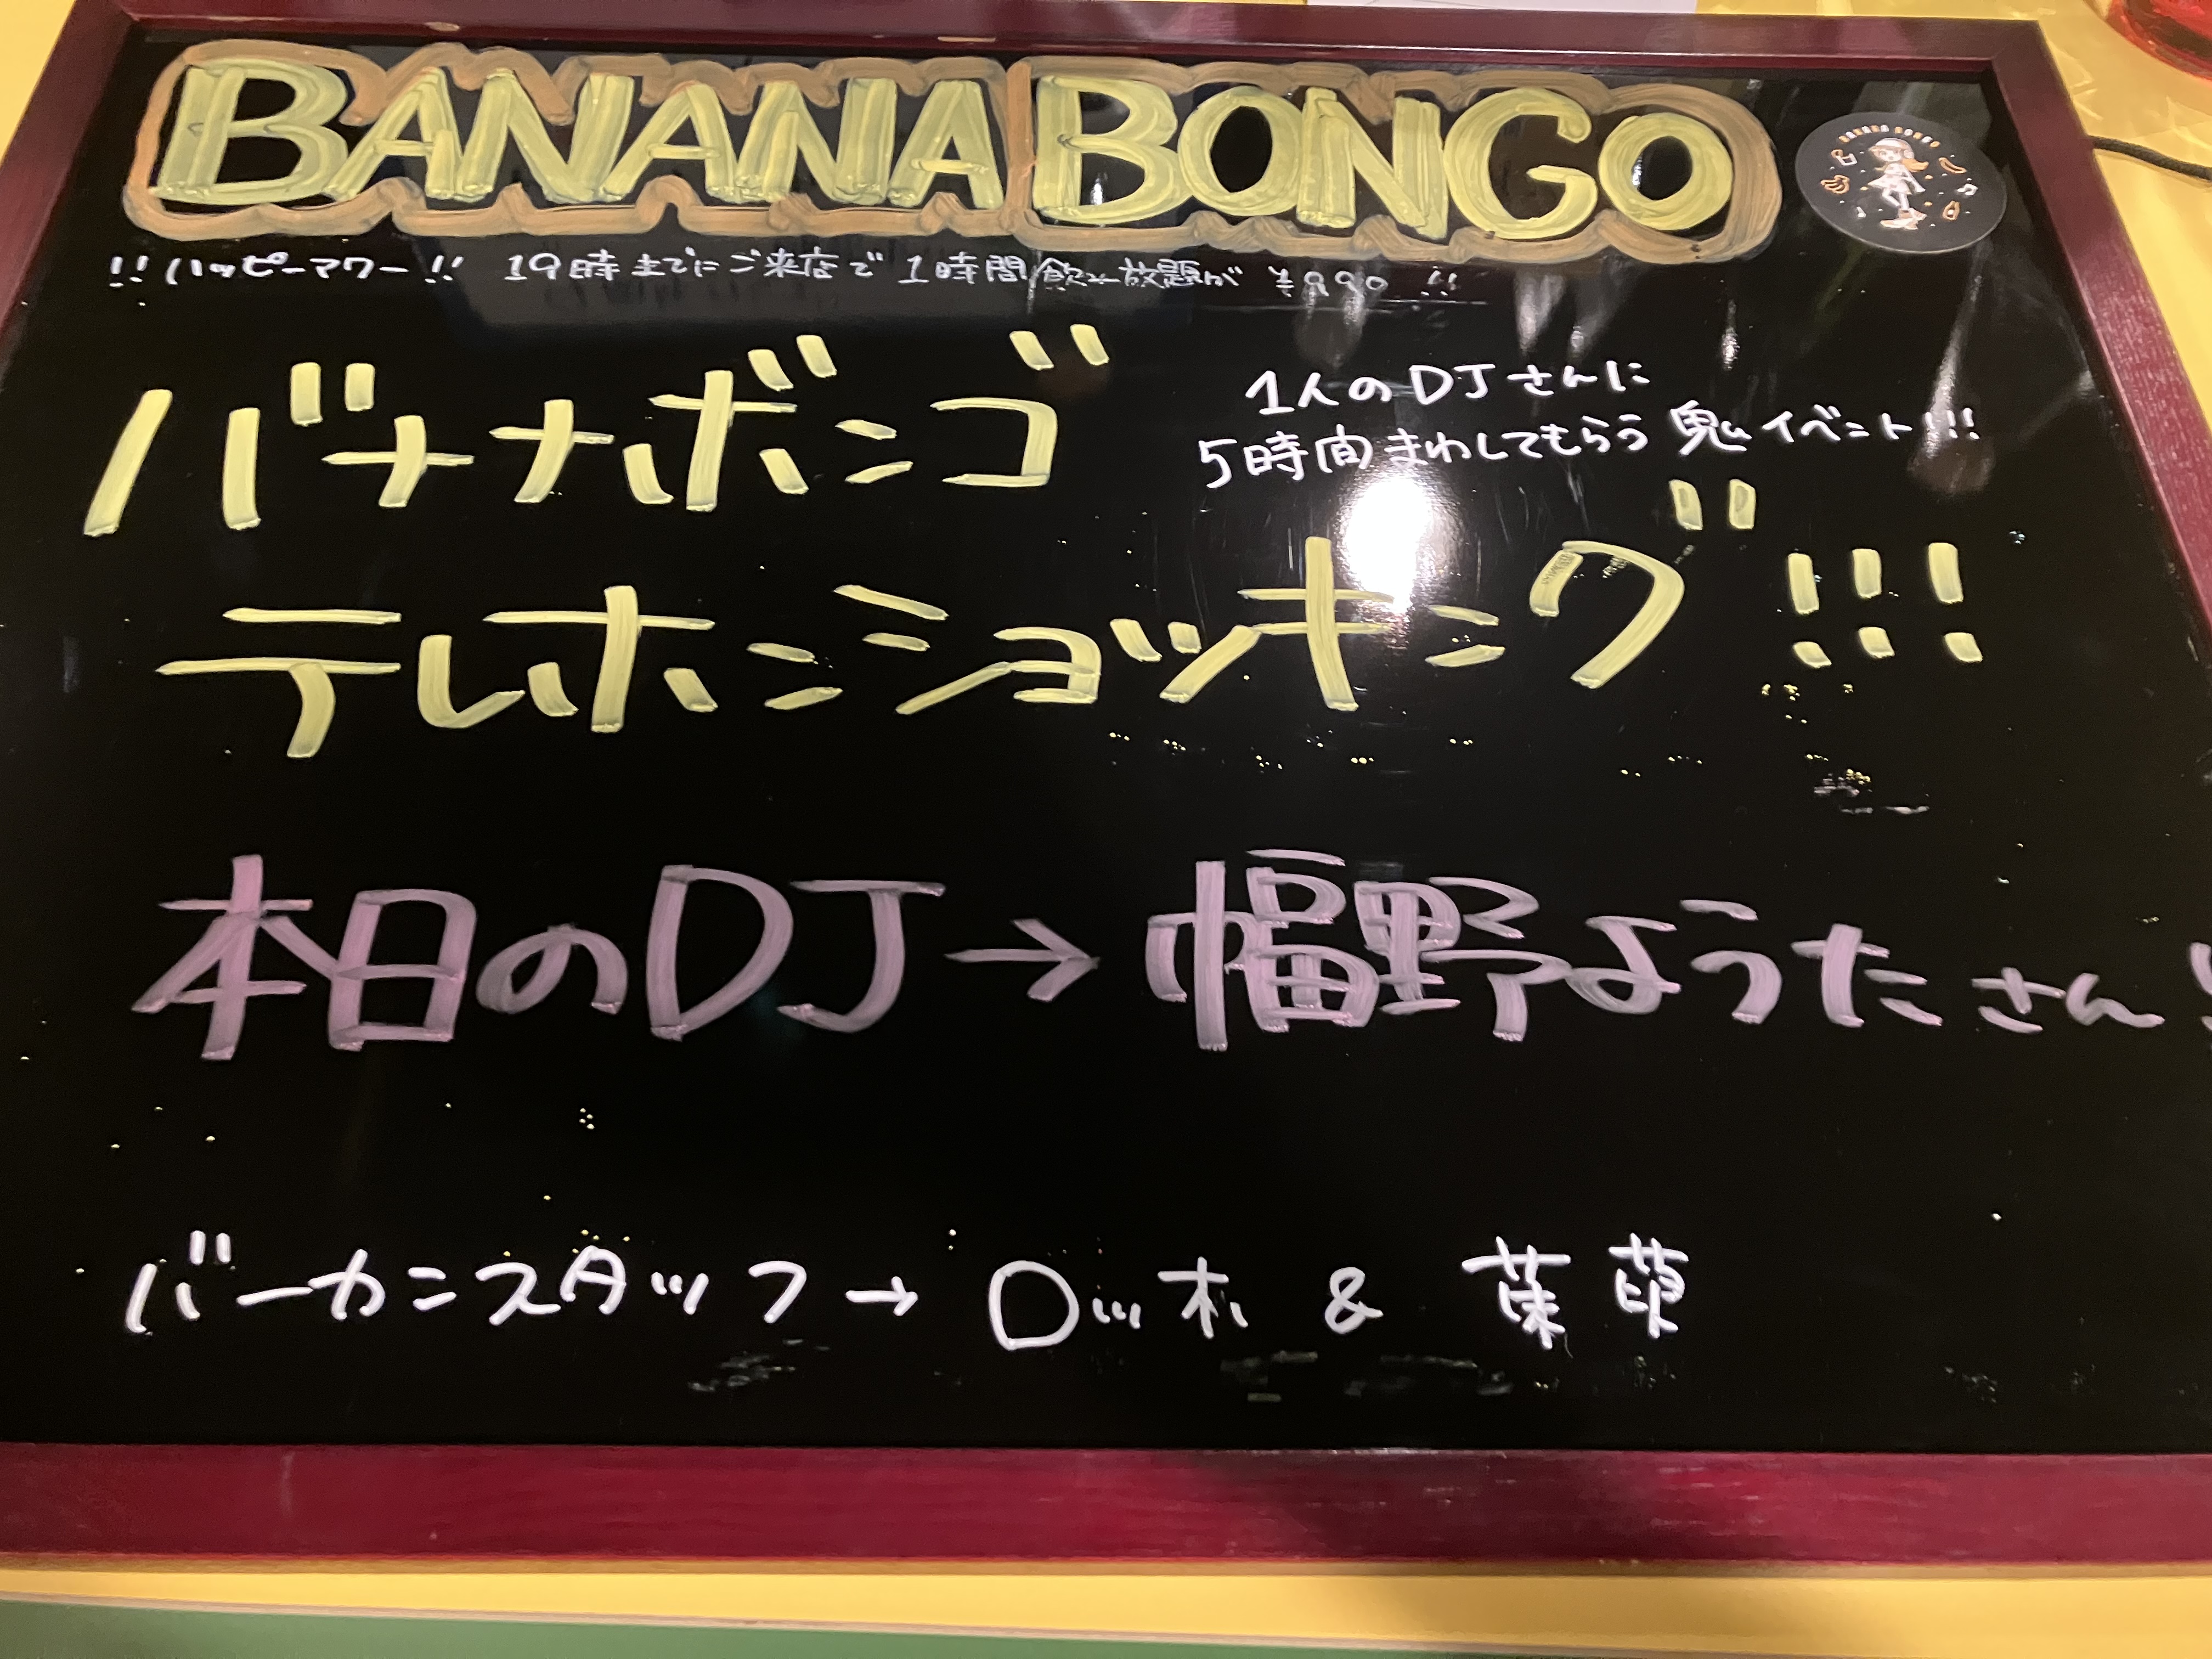 BANANA BONGO
BANANA BONGO
!! ハッピーアワー !! 19時までにご来店で 1時間飲み放題が ¥990 !!
バナナボンゴ
1人のDJさんに
5時間まわしてもらう 鬼イベント!!!
テレホンショッキング!!!
本日のDJ→幅野ようたさん!
バーカンスタッフ→ロッホ &